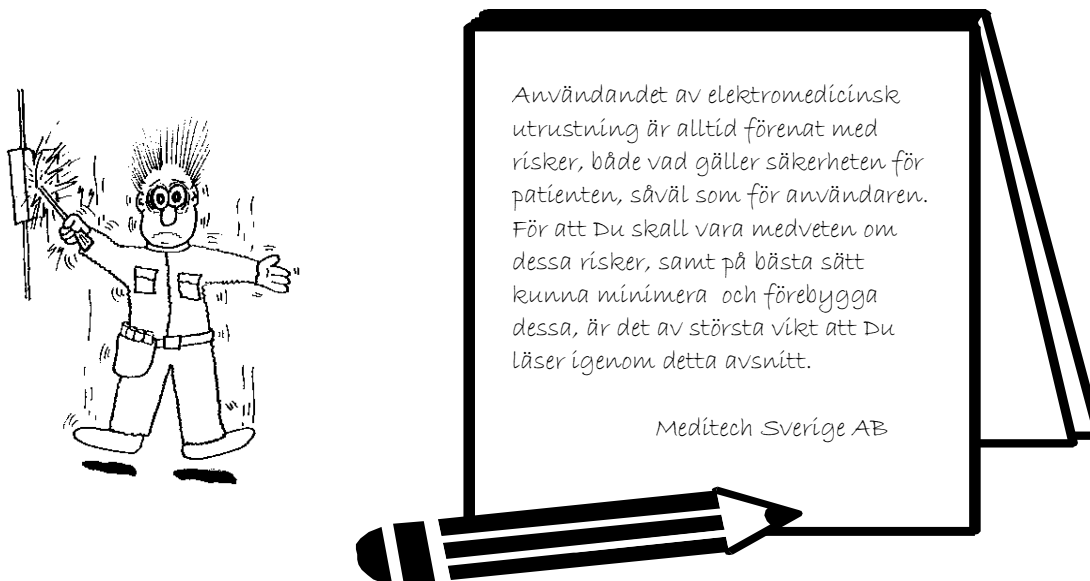 Användandet av elektromedicinsk
utrustning är alltid förenat med
risker, både vad gäller säkerheten för
patienten, såväl som för användaren.
För att Du skall vara medveten om
dessa risker, samt på bästa sätt
kunna minimera och förebygga
dessa, är det av största vikt att Du
läser igenom detta avsnitt.
Meditech Sverige AB